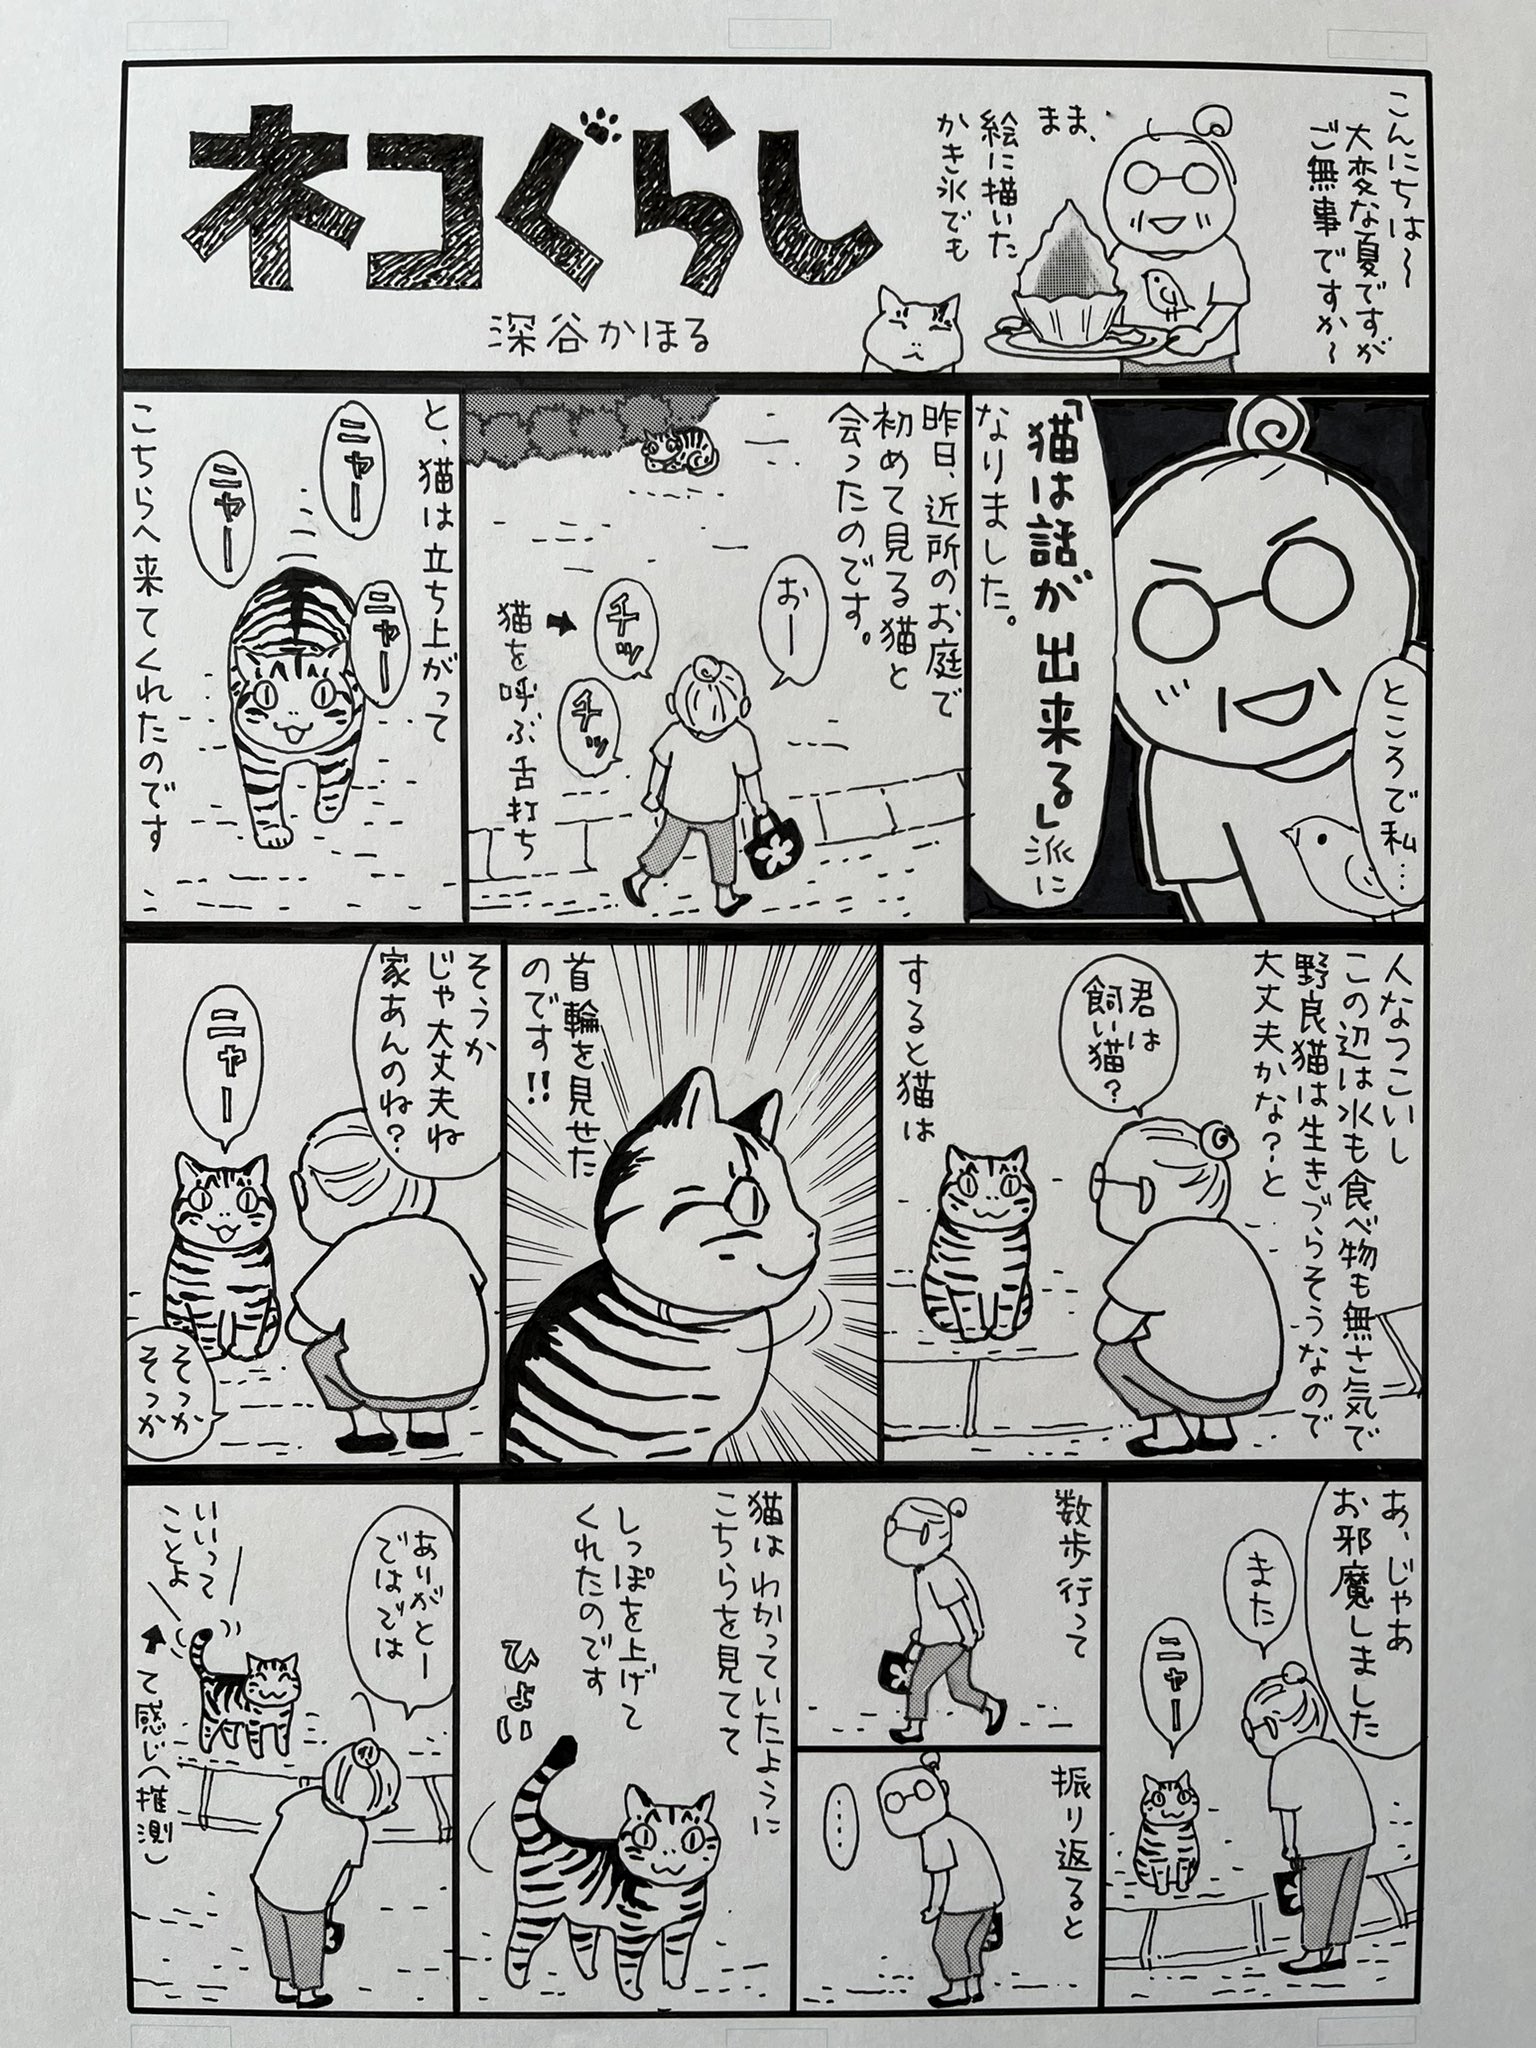 こんにちは〜
大変な夏ですが
ご無事ですか〜
まま、
絵に描いた
かき氷でも
ネコぐらし
深谷かほる
ところで私…
「猫は話が出来る」派に
なりました。
昨日、近所のお庭で
初めて見る猫と
会ったのです。
おー
チッ
チッ
猫を呼ぶ舌打ち
と、猫は立ち上がって
ニャー
ニャー
ニャー
こちらへ来てくれたのです
人なつこいし
この辺は水も食べ物も無さ気で
野良猫は生きづらそうなので
大丈夫かな？と
君は
飼い猫？
すると猫は
首輪を見せた
のです!!
そうか
じゃ大丈夫ね
家あんのね？
ニャー
そっか
そっか
あ、じゃあ
お邪魔しました
また
ニャー
数歩行って
振り返ると
……
猫はわかっていたように
こちらを見てて
しっぽを上げて
くれたのです
ひょい
ありがとー
ではでは
いいって
ことよ
て感じ(推測)